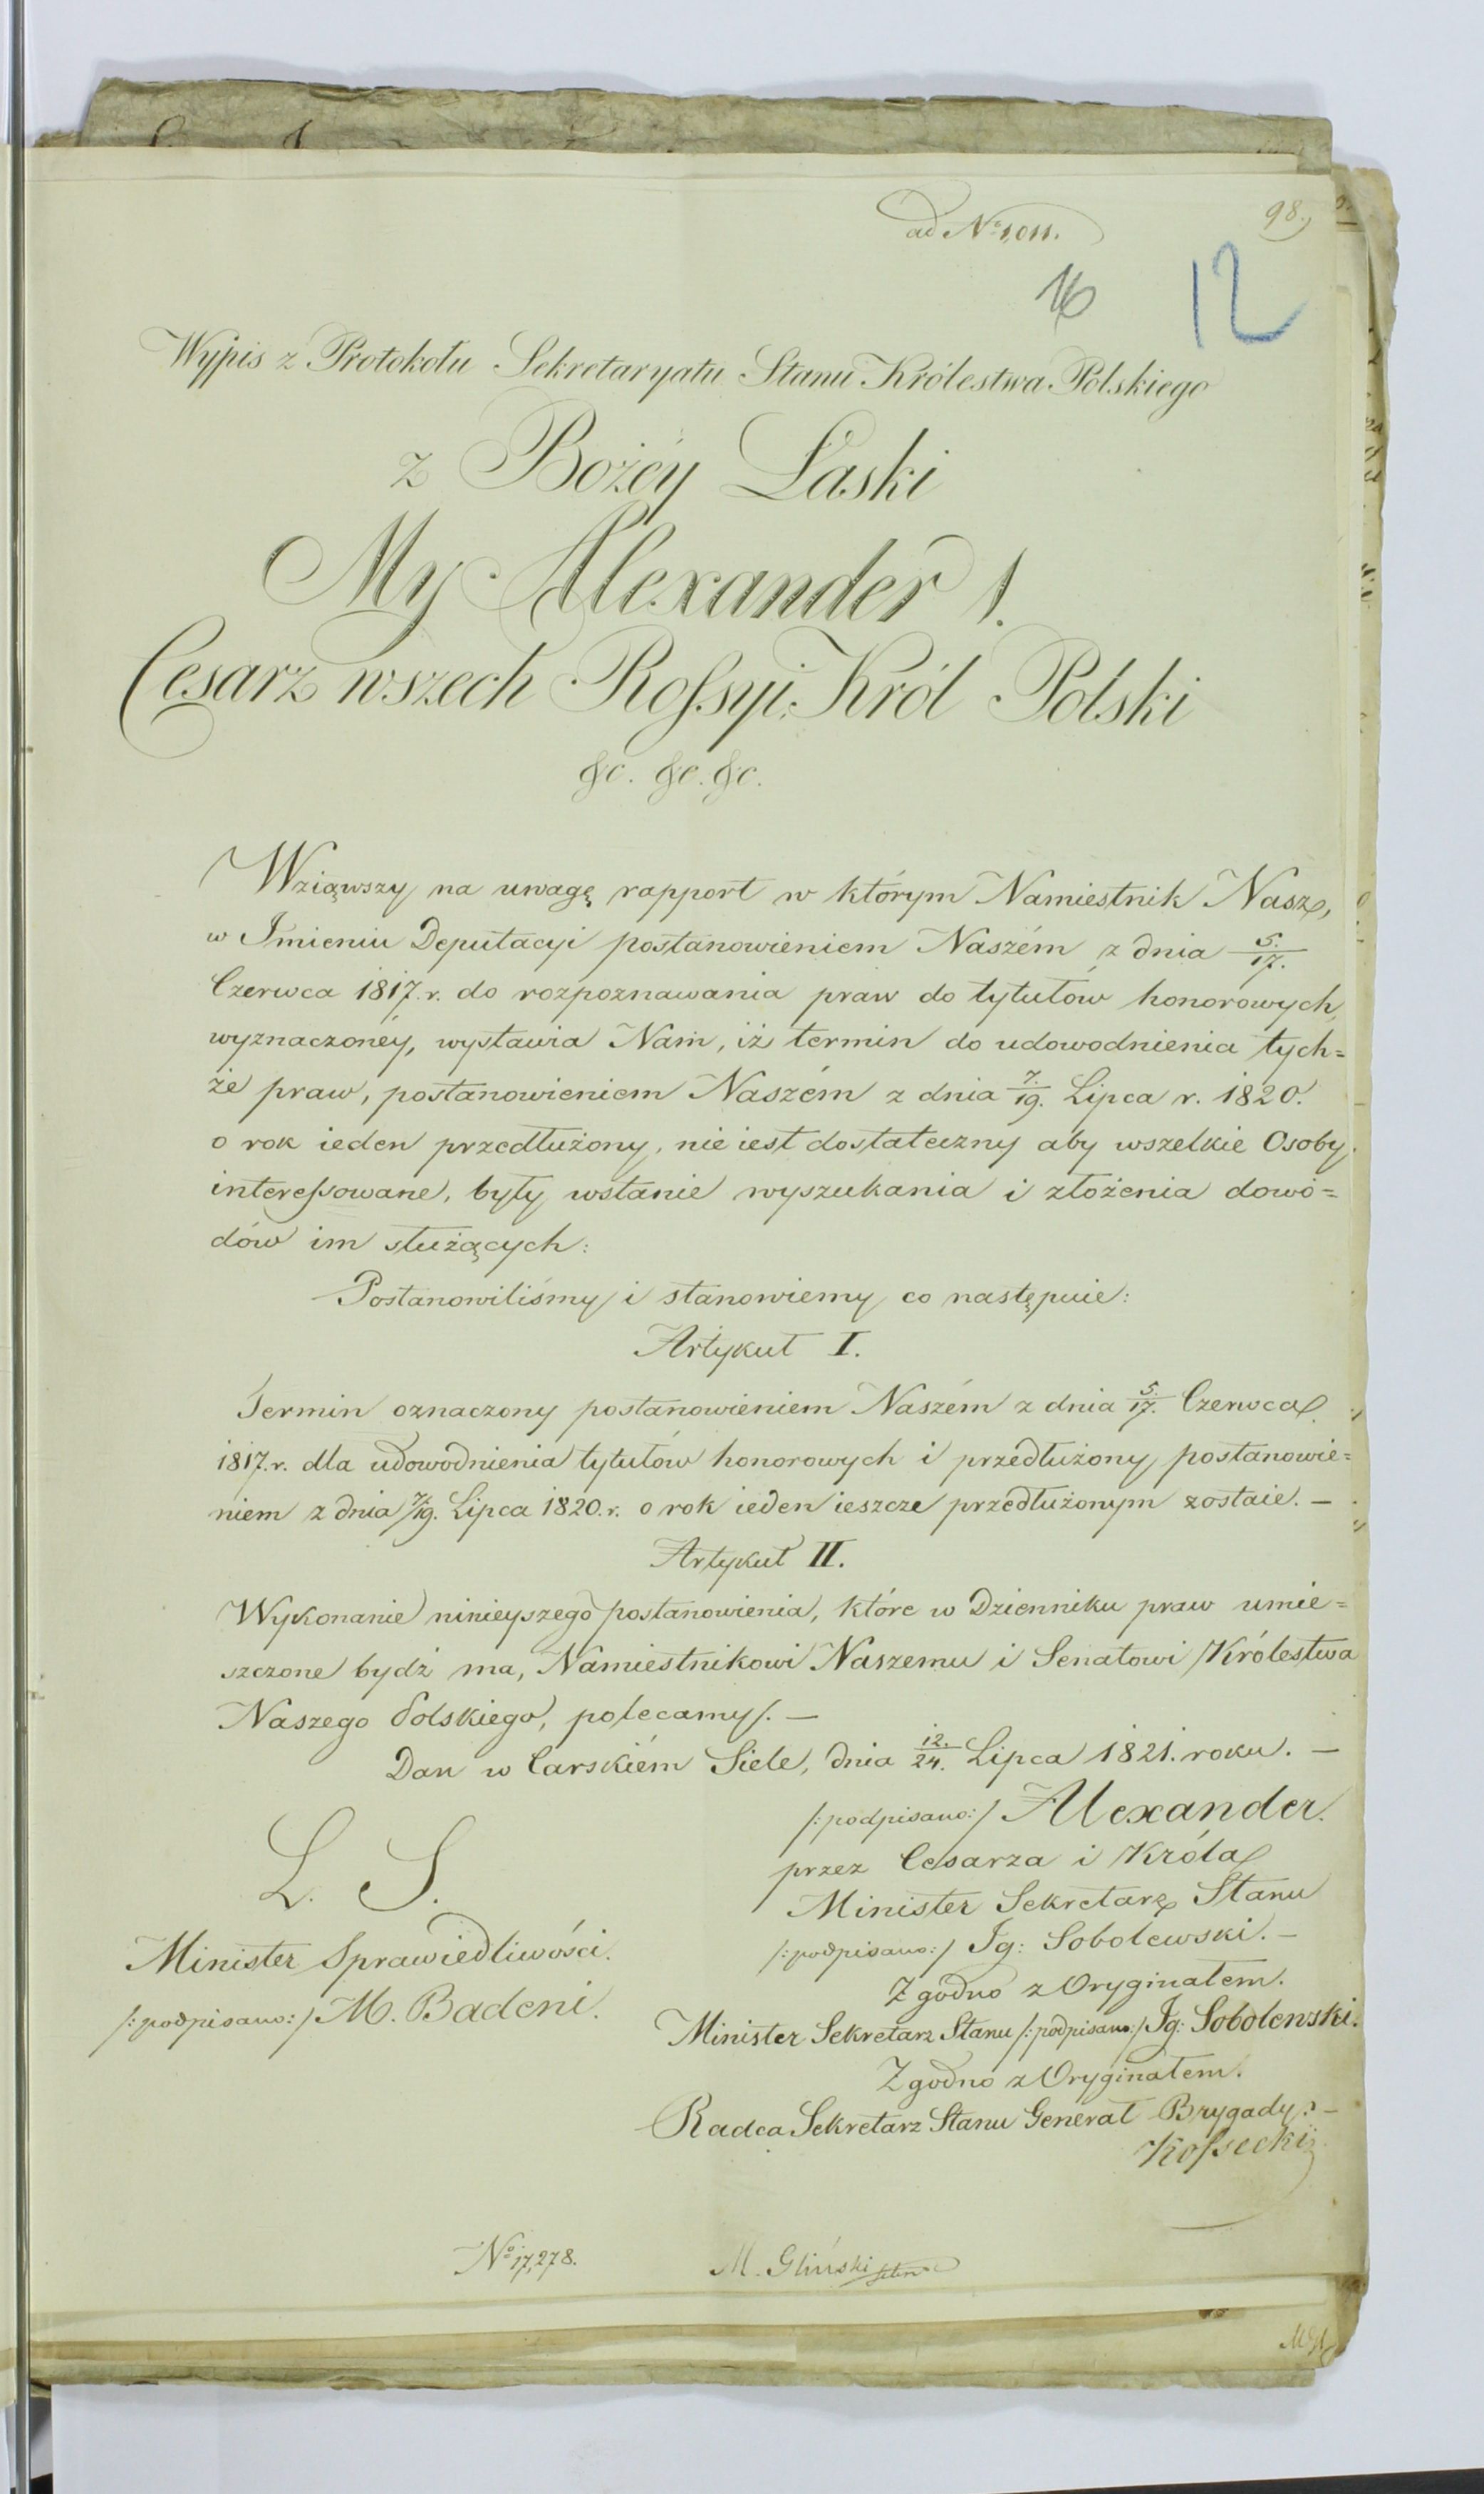 ad No 1,011.
98.
16
12
Wypis z Protokołu Sekretaryatu Stanu Królestwa Polskiego
z Bożéy Łaski
My Alexander I.
Cesarz wszech Rossyi, Król Polski
&c. &c. &c.
Wziąwszy na uwagę rapport w którym Namiestnik Nasz,
w Imieniu Deputacyi postanowieniem Naszém z dnia 5./17.
Czerwca 1817. r. do rozpoznawania praw do tytułów honorowych,
wyznaczonéy, wystawia Nam, iż termin do udowodnienia tych=
że praw, postanowieniem Naszém z dnia 7./19. Lipca r. 1820.
o rok ieden przedłużony, nie iest dostateczny aby wszelkie Osoby
interessowane, były wstanie wyszukania i złożenia dowo=
dów im służących:
Postanowiliśmy i stanowiemy co następuie:
Artykuł I.
Termin oznaczony postanowieniem Naszém z dnia 5./17. Czerwca
1817. r. dla udowodnienia tytułów honorowych i przedłużony postanowie=
niem z dnia 7/19. Lipca 1820. r. o rok ieden ieszcze przedłużonym zostaie. —
Artykuł II.
Wykonanie ninieyszego postanowienia, które w Dzienniku praw umie=
szczone bydź ma, Namiestnikowi Naszemu i Senatowi Królestwa
Naszego Polskiego, polecamy. —
Dan w Carskiém Siele, dnia 12./24. Lipca 1821. roku. —
/:podpisano:/ Alexander.
przez Cesarza i Króla
L. S.
Minister Sekretarz Stanu
Minister Sprawiedliwości.
/:podpisano:/ Ig: Sobolewski. —
/:podpisano:/ M. Badeni.
Zgodno z Oryginałem.
Minister Sekretarz Stanu /:podpisano:/ Ig: Sobolewski.
Zgodno z Oryginałem.
Radca Sekretarz Stanu Generał Brygady: —
Kossecki
No 17,278.
M. Gliński